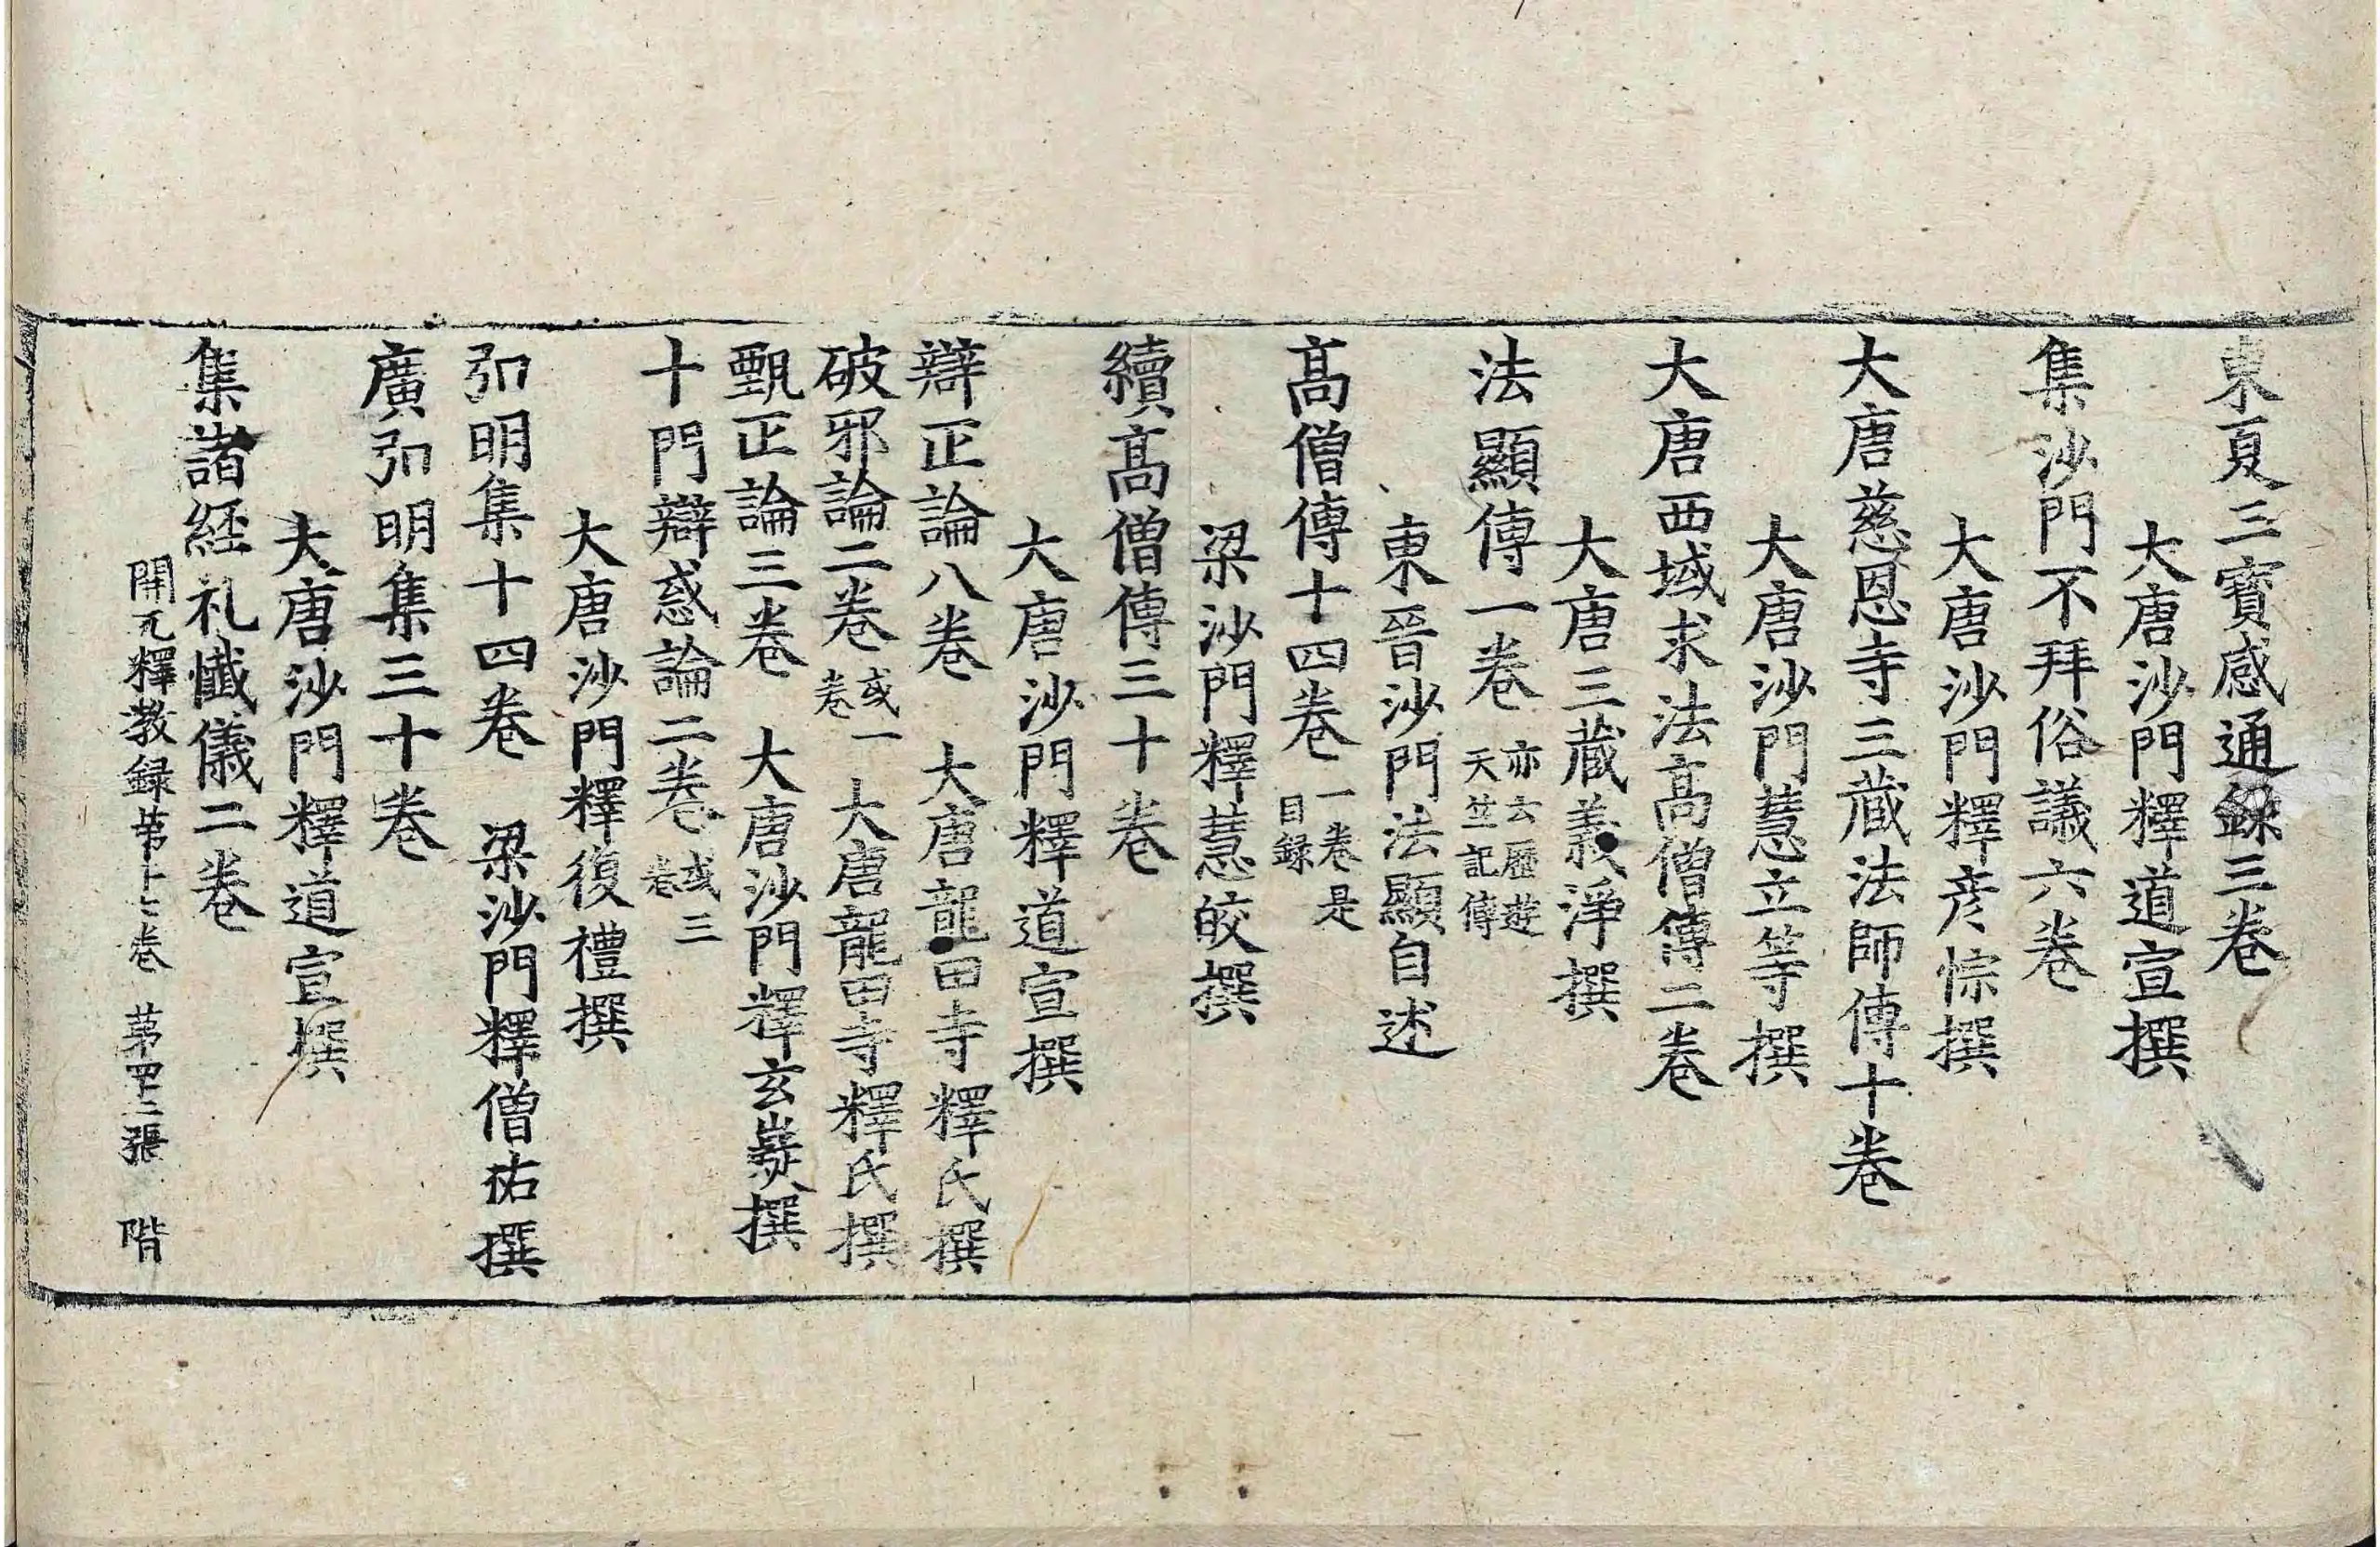 東夏三寶感通録三卷
大唐沙門釋道宣撰
集沙門不拜俗議六卷
大唐沙門釋彦悰撰
大唐慈恩寺三蔵法師傳十卷
大唐沙門慧立等撰
大唐西域求法髙僧傳二卷
大唐三蔵義淨撰
法顯傳一卷 亦云歷遊天竺記傳
東晉沙門法顯自述
髙僧傳十四卷 一卷是目録
梁沙門釋慧皎撰
續髙僧傳三十卷
大唐沙門釋道宣撰
辯正論八卷 大唐龍田寺釋氏撰
破邪論二卷 或一卷 大唐龍田寺釋氏撰
甄正論三卷 大唐沙門釋玄嶷撰
十門辯惑論二卷 或三卷
大唐沙門釋復禮撰
弘明集十四卷 梁沙門釋僧祐撰
廣弘明集三十卷
大唐沙門釋道宣撰
集諸経礼懺儀二卷
開元釋教録第十七卷 第四十二張 階